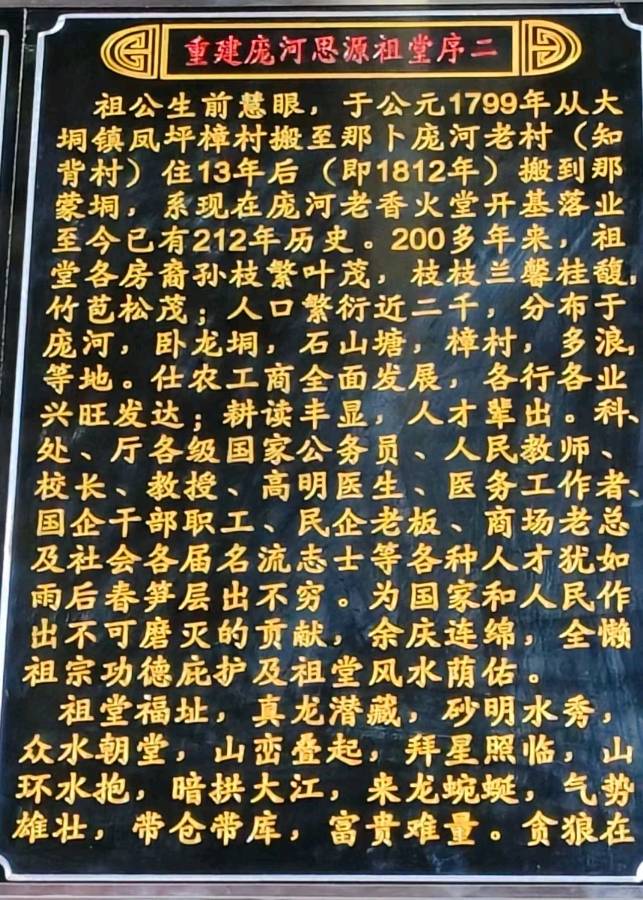 重建庞河思源祖堂序二
祖公生前慧眼，于公元1799年从大
垌镇凤坪樟村搬至那卜庞河老村（知
背村）住13年后（即1812年）搬到那
蒙垌，系现在庞河老香火堂开基落业
至今已有212年历史。200多年来，祖
堂各房裔孙枝繁叶茂，枝枝兰馨桂馥，
竹苞松茂；人口繁衍近二千，分布于
庞河，卧龙垌，石山塘，樟村，多浪，
等地。仕农工商全面发展，各行各业
兴旺发达；耕读丰显，人才辈出。科、
处、厅各级国家公务员、人民教师、
校长、教授、高明医生、医务工作者、
国企干部职工、民企老板、商场老总
及社会各届名流志士等各种人才犹如
雨后春笋层出不穷。为国家和人民作
出不可磨灭的贡献，余庆连绵，全懒
祖宗功德庇护及祖堂风水荫佑。
祖堂福址，真龙潜藏，砂明水秀，
众水朝堂，山峦叠起，拜星照临，山
环水抱，暗拱大江，来龙蜿蜒，气势
雄壮，带仓带库，富贵难量。贪狼在